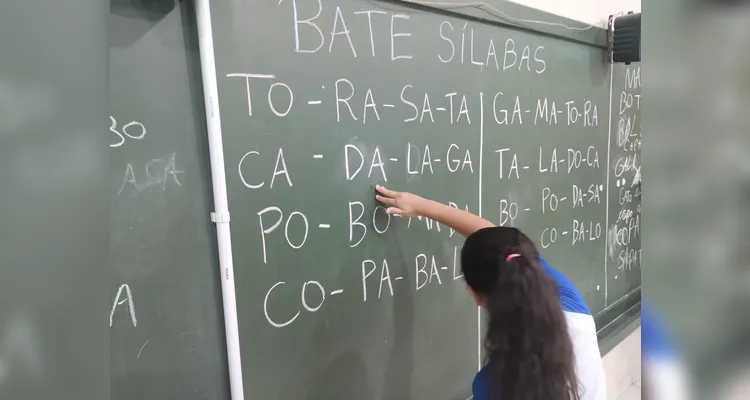 BATE SÍLABAS
TO - RA - SA - TA
CA - DA - LA - GA
PO - BO - MA - BA
CO - PA - BA -
GA - MA - TO - RA
TA - LA - DO - CA
BO - PO - DA - SA
CO - BA - LO
BO
A SA
A
MA
BO